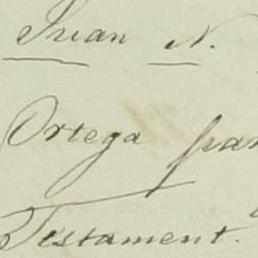 Juan N.
Ortega par
Testament.